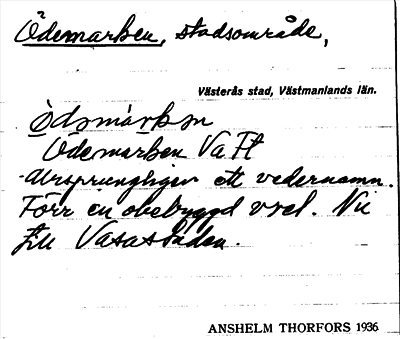 Ödemarken, stadsområde,
Västerås stad, Västmanlands län.
ödemarken
Ödemarken Va Ft
Ursprungligen ett vedernamn.
Förr en obebyggd vret. Nu
Vasastaden.
ANSHELM THORFORS 1936